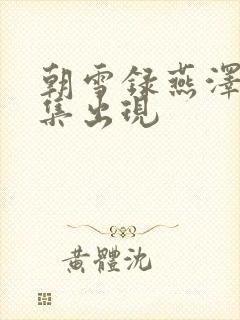 朝雪録燕澤
集出現
黃體沈